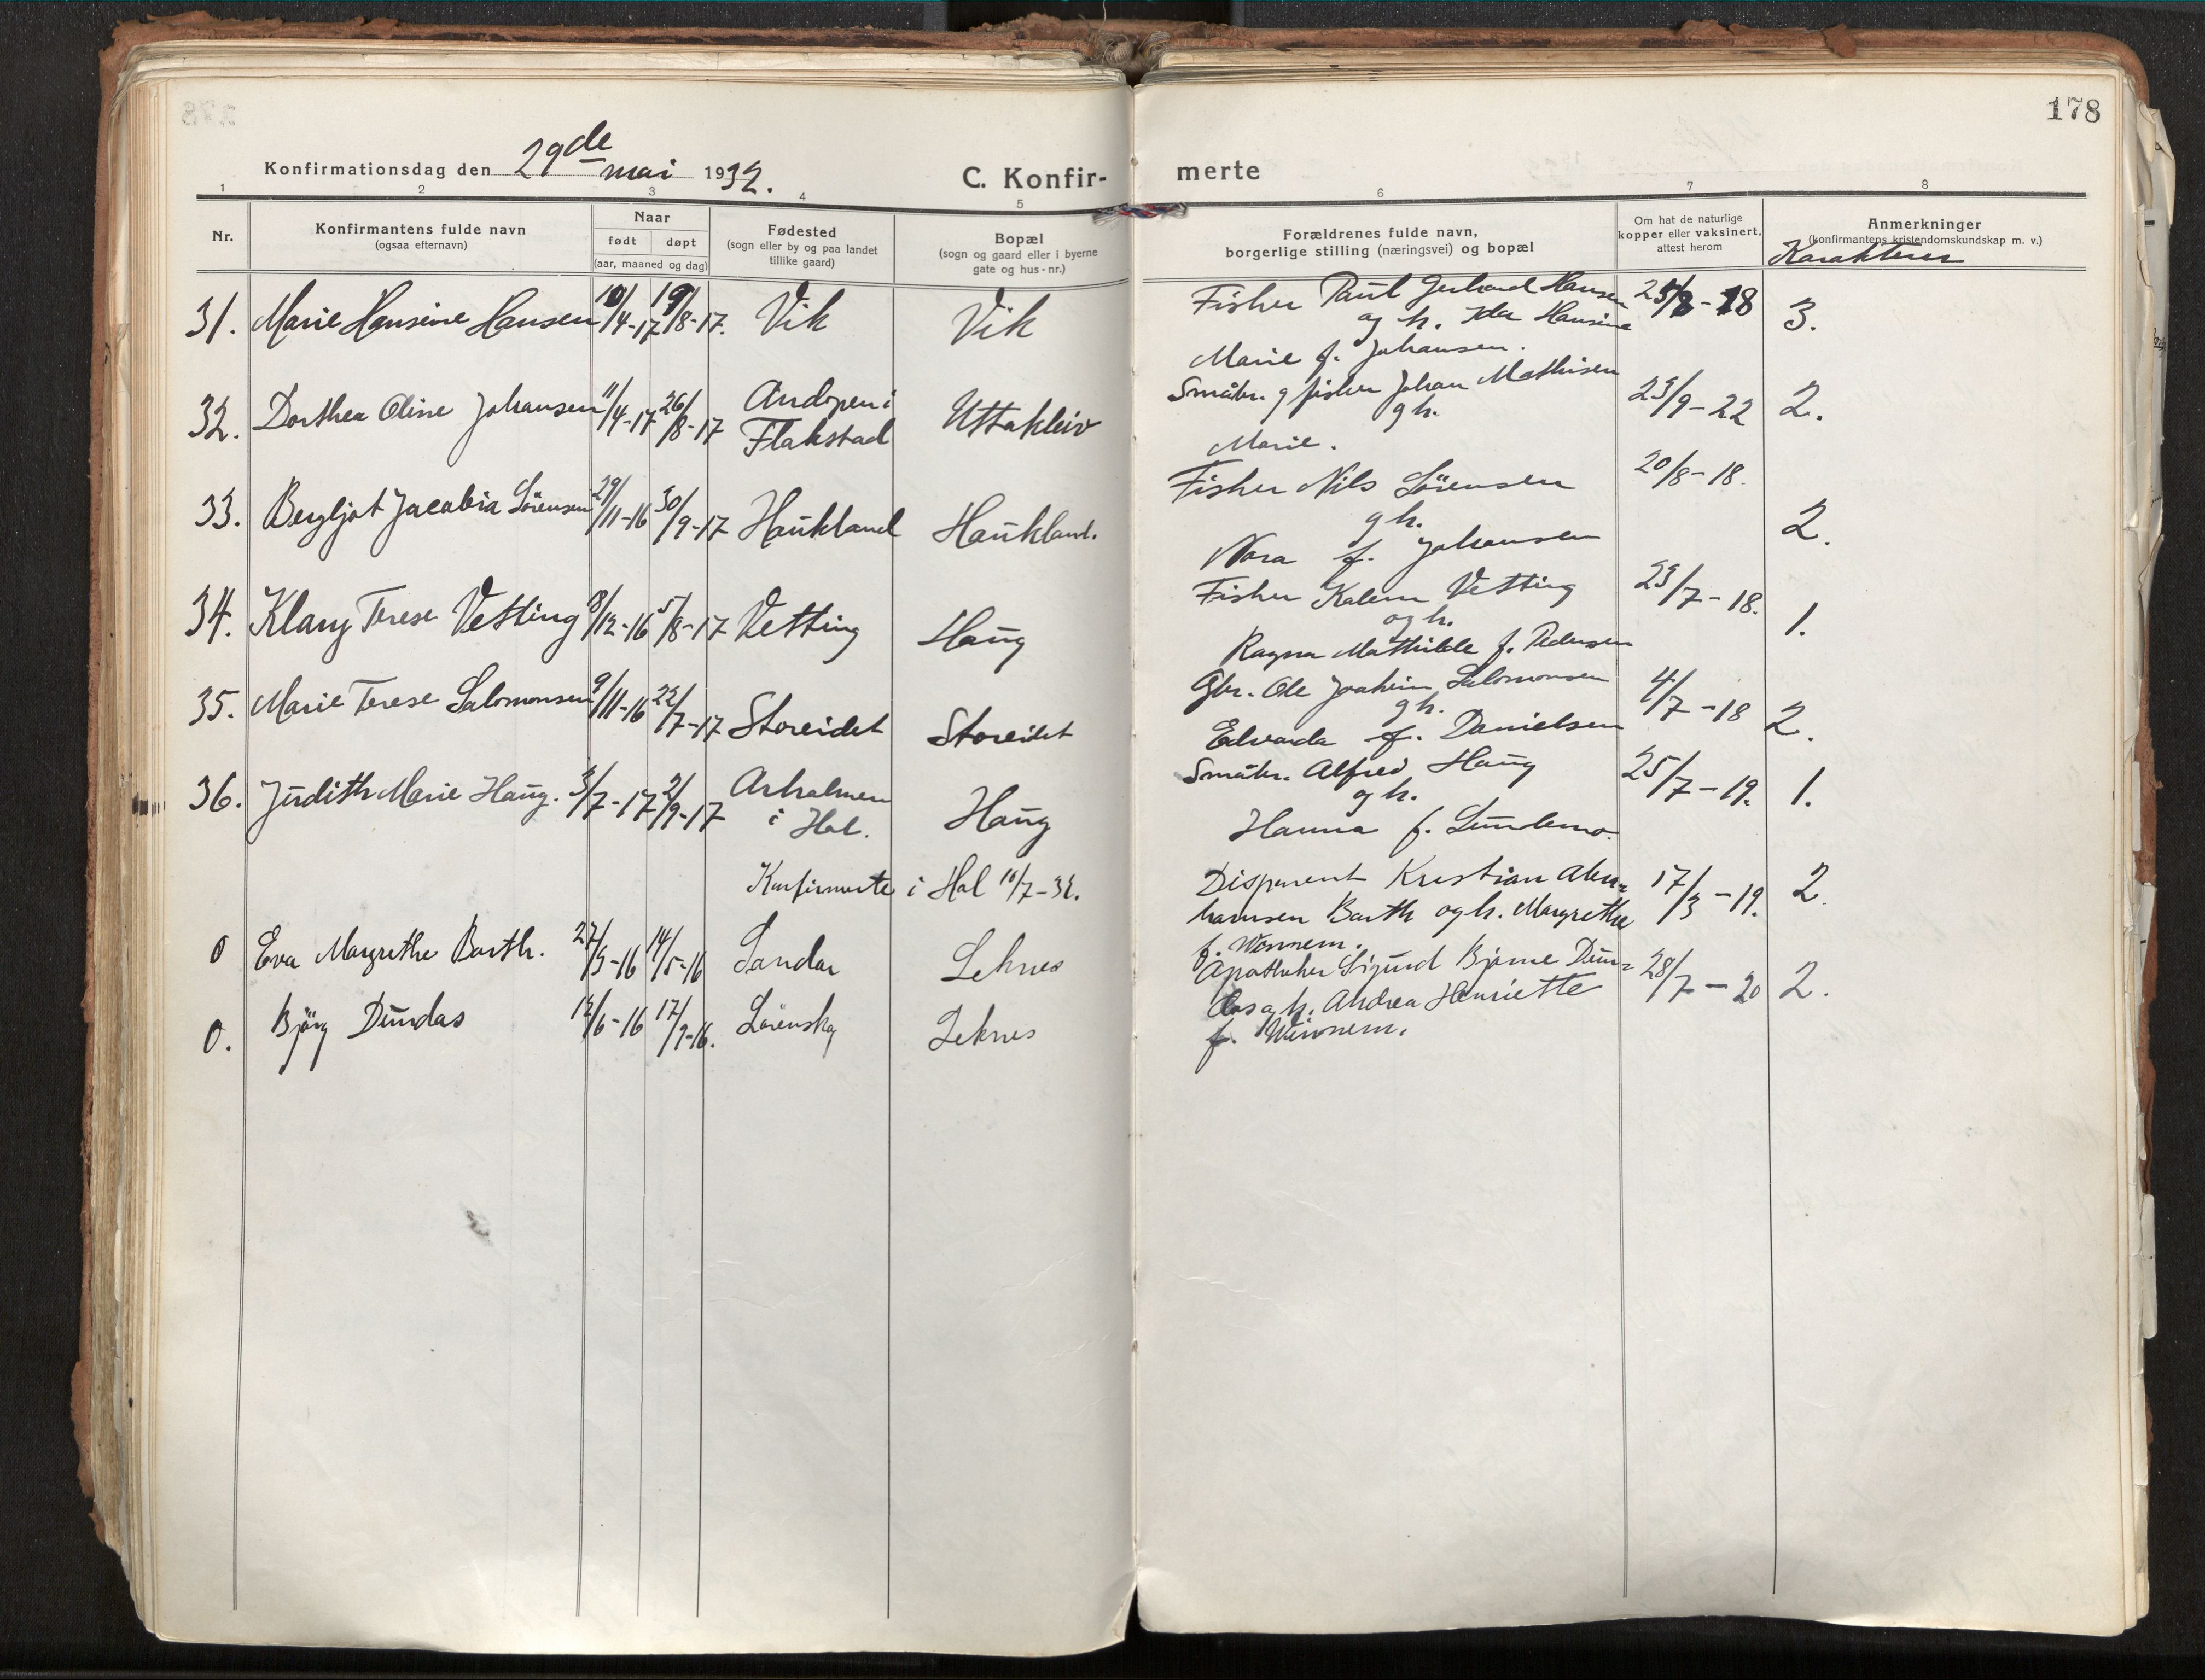 178
Konfirmationsdag den 29de mai 1932.
C. Konfir-
merte
1 2 3 4 5 6 7 8
Nr.
Konfirmantens fulde navn
(ogsaa efternavn)
Naar
født døpt
(aar, maaned og dag)
Fødested
(sogn eller by og paa landet
tillike gaard)
Bopæl
(sogn og gaard eller i byerne
gate og hus-nr.)
Forældrenes fulde navn,
borgerlige stilling (næringsvei) og bopæl
Om hat de naturlige
kopper eller vaksinert,
attest herom
Anmerkninger
(konfirmantens kristendomskundskap m. v.)
Karakterer
31. Marie Hansine Hansen 10/4-17 19/8-17. Vik Vik
Fisker Paul Gerhard Hansen
og h. Ida Hansine
Marie f. Johansen.
18 3.
32. Dorthea Oline Johansen 11/4-17 26/8-17 Andopen i
Flakstad
Uttakleiv
Småbr. g fisker Johan Mathisen
g h.
Marie.
23/9-22 2.
33. Bergljot Jacobia Sörensen 29/11-16 30/9-17 Haukland Haukland.
Fisker Nils Sörensen
g h.
Nora f. Johansen
20/8-18. 2.
34. Klary Terese Vetting 8/12-16 5/8-17 Vetting Haug
Fisker Vetting
og h.
Ragna Mathilde f. Pedersen
23/7-18. 1.
35. Marie Terese Salomonsen 9/11-16 22/7-17 Storeidet Storeidet
Gbr. Ole Joakim Salomonsen
g h.
Edvarda f. Danielsen
4/7-18 2.
36. Judith Marie Haug. 3/7-17 2/9-17 Arholmen
i Hol.
Haug
Småbr. Alfred Haug
og h.
Hanna f. Lundemo.
25/7-19. 1.
Konfirmerte i Hol 10/7-32.
0 Eva Margrethe Barth. 27/3-16 14/5-16 Sandar Leknes
Disponent Kristian Abra=
hamsen Barth og h. Margrethe
f.
17/3-19. 2.
0. Björg Dundas 12/6-16 17/9-16. Lörenskog Leknes
Apotheker Sigurd Bjarne Dun=
das og h. Andrea Henriette
f.
28/7-20 2.